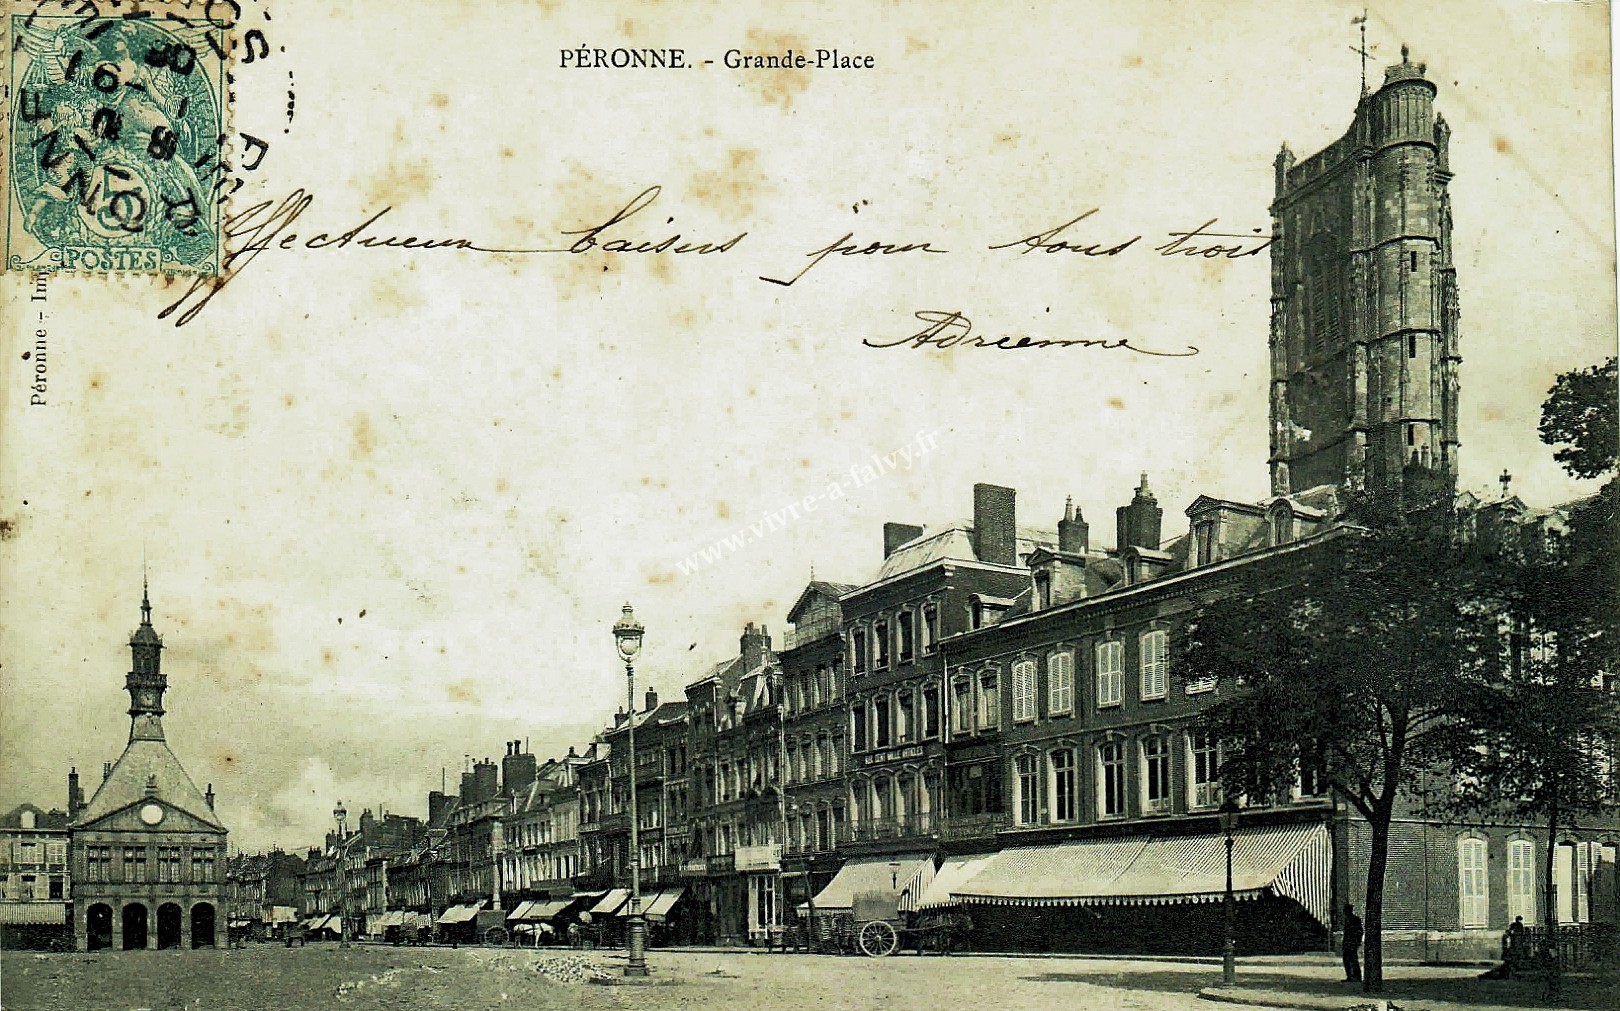 PÉRONNE. - Grande-Place
5
POSTES
Affectueux baisers pour tous trois
Adrienne
Péronne - Im
www.vivre-a-falvy.fr